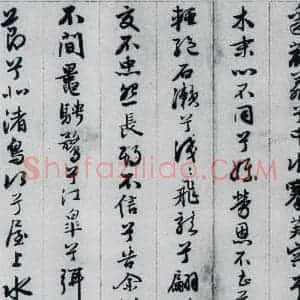 木末心不同兮媒勞恩不甚
輕絕石瀨兮淺飛龍兮翩
交不忠怨長期不信兮告余
不間鼂騁騖兮江皋夕弭
節兮北渚鳥次兮屋上水
Shufaziliao.COM